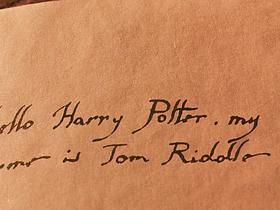 ello Harry Potter. my
ame is Tom Riddle